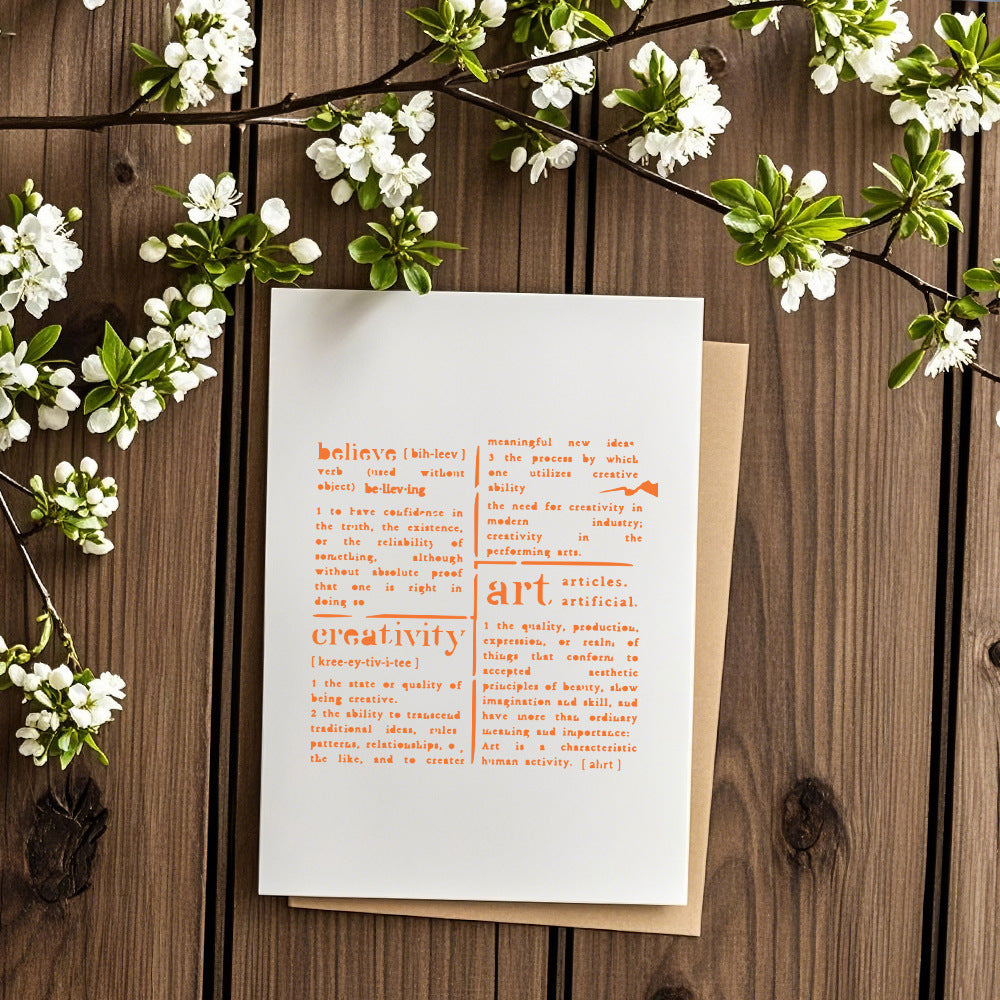 believe [ bih-leev ]
verb (used without
object) be-liev-ing
1 to have confidence in
the truth, the existence,
or the reliability of
something, although
without absolute proof
that one is right in
doing so
creativity
[ kree-ey-tiv-i-tee ]
1 the state or quality of
being creative.
2 the ability to transcend
traditional ideas, rules
patterns, relationships, o ,
the like, and to creater
meaningful new ideas
3 the process by which
one utilizes creative
ability
the need for creativity in
modern industry;
creativity in the
performing arts.
art, articles.
artificial.
1 the quality, production,
expression, or realm, of
things that conform to
accepted aesthetic
principles of beauty, show
imagination and skill, and
have more than ordinary
meaning and importance:
Art is a characteristic
human activity. [ ahrt ]